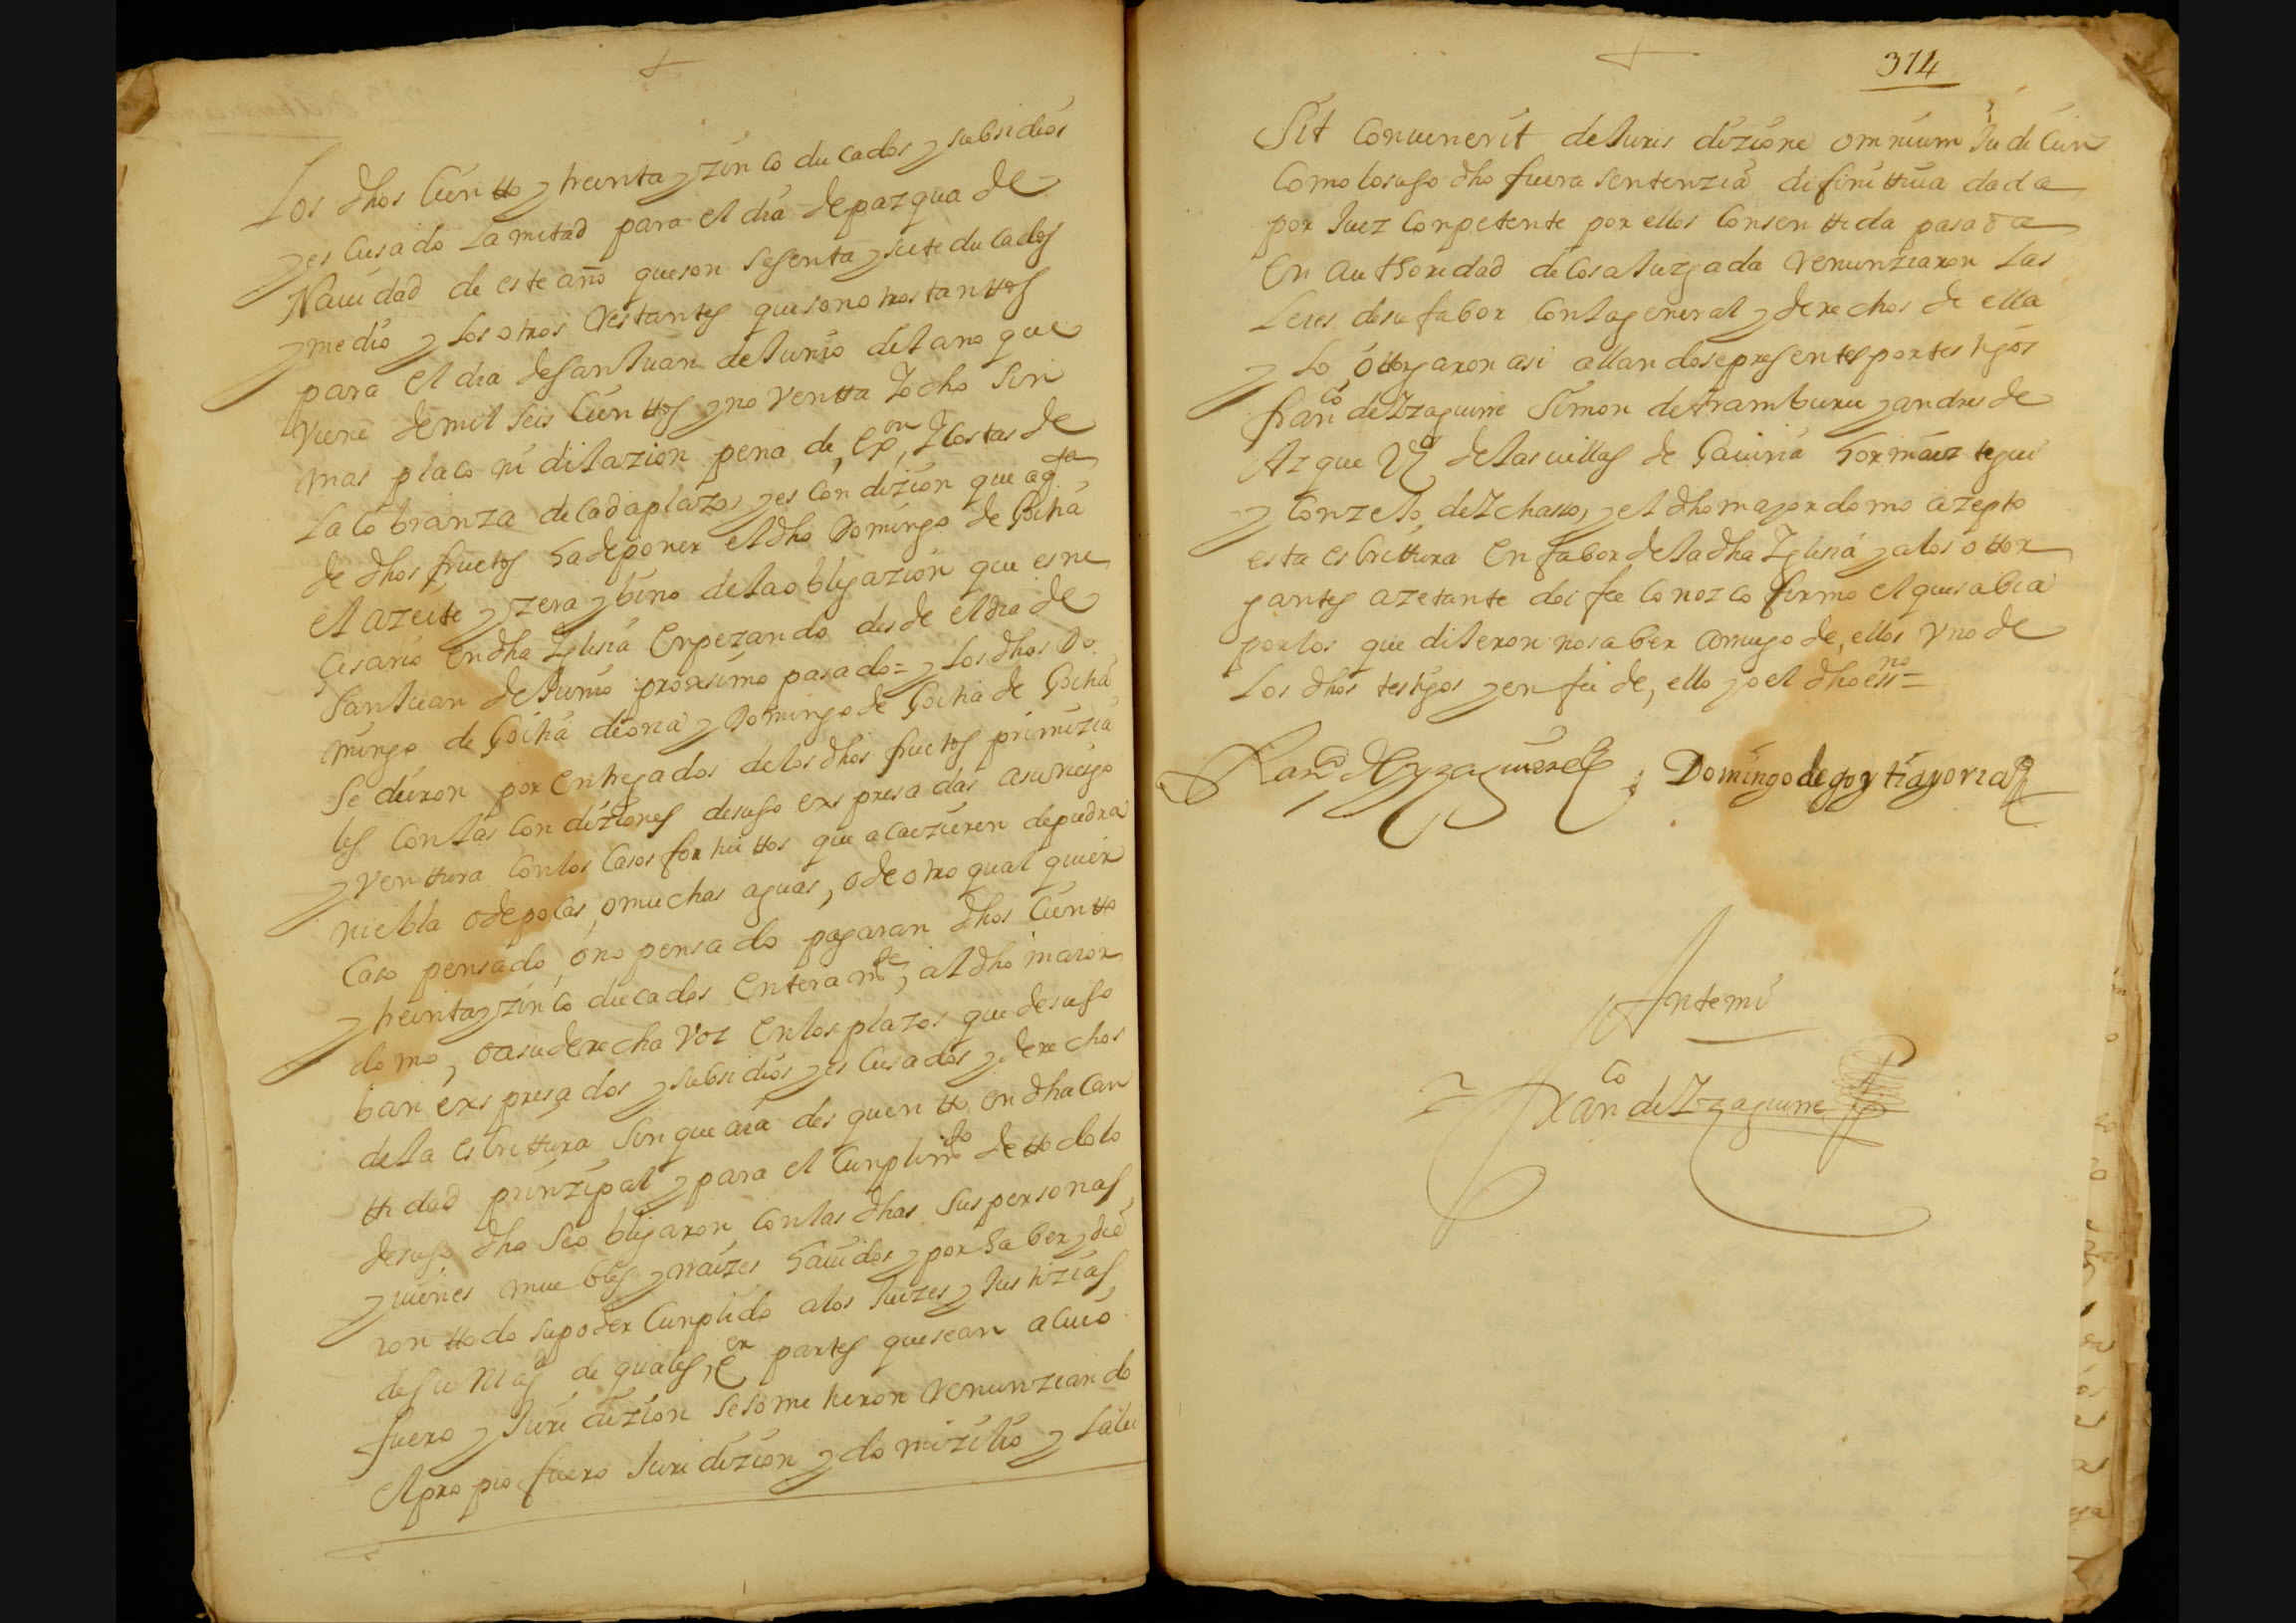 Los dhos Cientto y treinta y zinco ducados y subsidios
y es Cusado La mitad para el dia de pazqua de
Nauidad de este año que son sesenta y siete ducados
y medio y los otros Restantes que son otros tanttos
para el dia de San Juan de Junio del ano que
viene de mil seis Cienttos y no ventta Y ocho sin
mas placo ni dilazion pena de exon Y Costas de
La co branza de Cada plazo, y es Con dizion que
de dhos fructos ha de poner el dho Domingo de Goitia
el azeite y zera y bino de la obligazion que es ne
çesario en dha Yglesia Enpezando desde el dia de
San Juan de Junio proximo pasado = y Los dhos Do
mingo de Goitia de oria y Domingo de Goitia de Goitia
se dieron por Entregados de los dhos fructos primizia
les Con las Con diziones de suso exs presa das a su riesgo
y ven ttura Con los Casos for tui ttos que acaezieren de piedra
niebla o de polas, o muchas aguas, o de otro qual quier
Caso pensado, o no pensado pagaran dhos Cientto
y treinta y zinco ducados Entera mte, al dho maior
domo, o a su derecha voz En los plazos que de suso
ban exs presados y subsidios y es Cusados y derechos
de la es Crittura sin que aia des quentto en dha Can
tti dad prinzipal y para el Cunplimto de ttodo lo
de suso dho se o bligaron Con las dhas sus personas
y uienes mue bles y raizes hauidos y por haber y die
ron ttodo su poder Cunplido a los Juezes y Justizias
de su Magd de quales, er partes que sean a Cuio
fuero y Juri dizion se some tieron Renunziando
el pro pio fuero Juri dizion y do mizilio y La lei
374
Sit Conuenerit de Juris dizione omnium Judicun
Como lo suso dho fuera sentenzia difinittiua dada
por Juez Conpetente por ellos Consenttida pasada
en autthoridad de Cosa Juzgada Renunziaron Las
Leies de su fabor Con la general y derechos de ella
y Lo, ottorgaron asi allandose presentes por testigos
franco de Yzaguirre Simon de Aramburu y andres de
Azque Vs de las uillas de Gauiria hormaiz tegui
y Conzejo, de Ychasso, y el dho mayordomo azepto
esta es Crittura En fabor de la dha Yglesia y a los ottor
gantes azetante doi fee Conozco firmo el que sabia
por los que dijeron no saber a rruego de, ellos vno de
Los dhos testigos y en fee de, ello yo el dho essno =
Franco de Yzaguirre Domingo de goy tia y oria
Ante mi
Franco de Yzaguirre